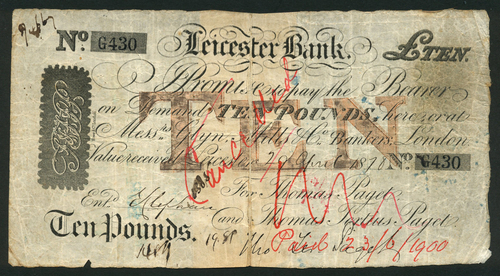 No. G430 Leicester Bank. £TEN.
I Promise to pay the Bearer
on Demand TEN POUNDS, here or at
Messrs. Glyn, Mills & Co. Bankers, London
Value received Leicester April No. G430
TEN
Cancelled
For Thomas Paget
Entd. and Thomas Tertius Paget
Ten Pounds.
Paid 1900